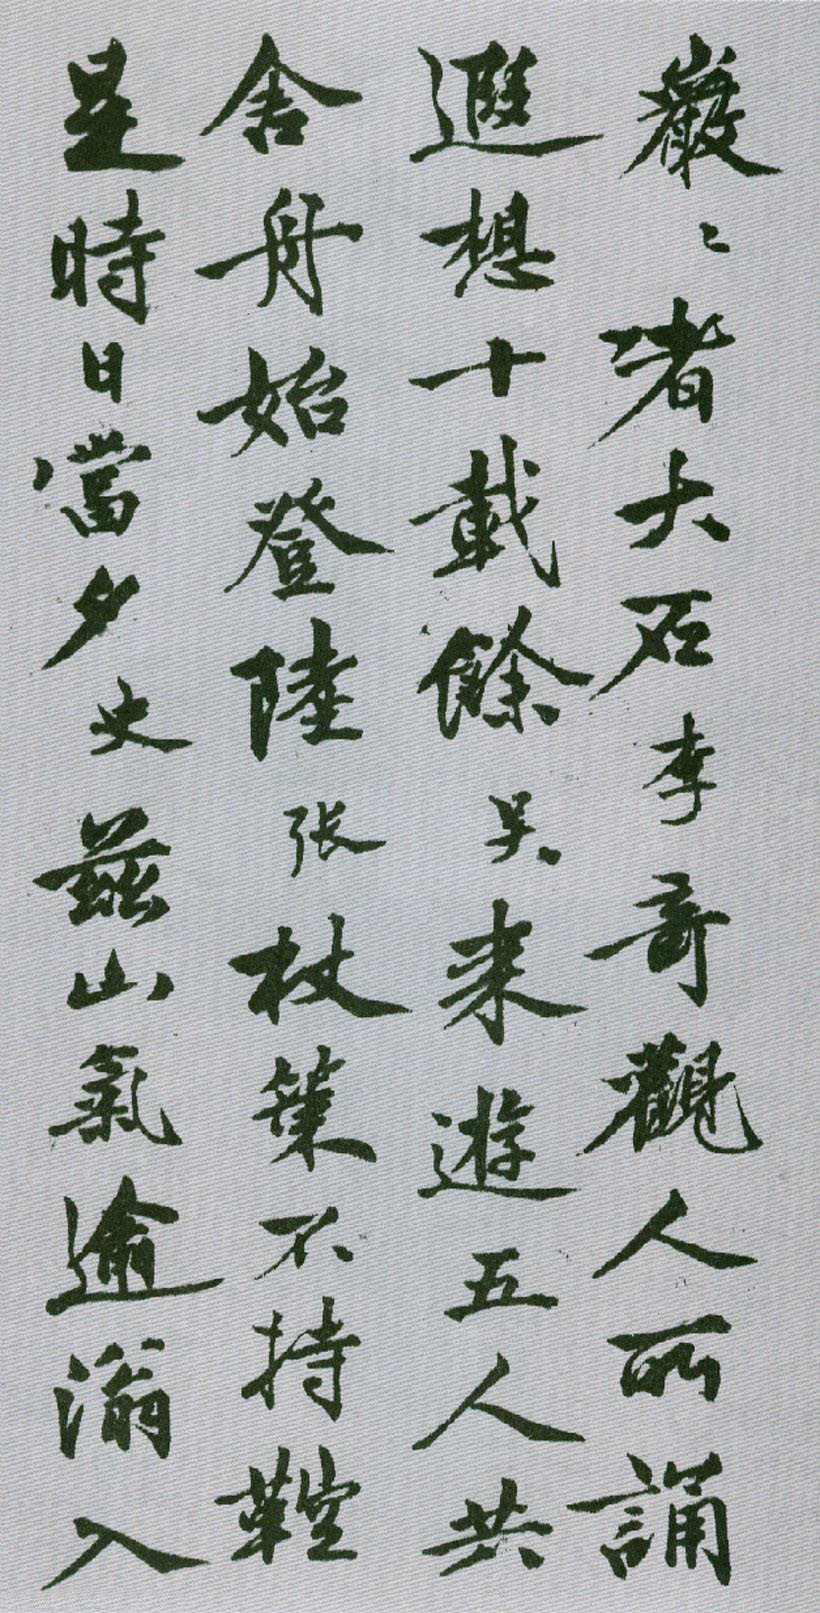 巖〻者大石李竒觀人所誦
遐想十載餘吳来遊五人共
舍舟始登陸张杖策不持鞚
是時日當夕史茲山氣逾滃入